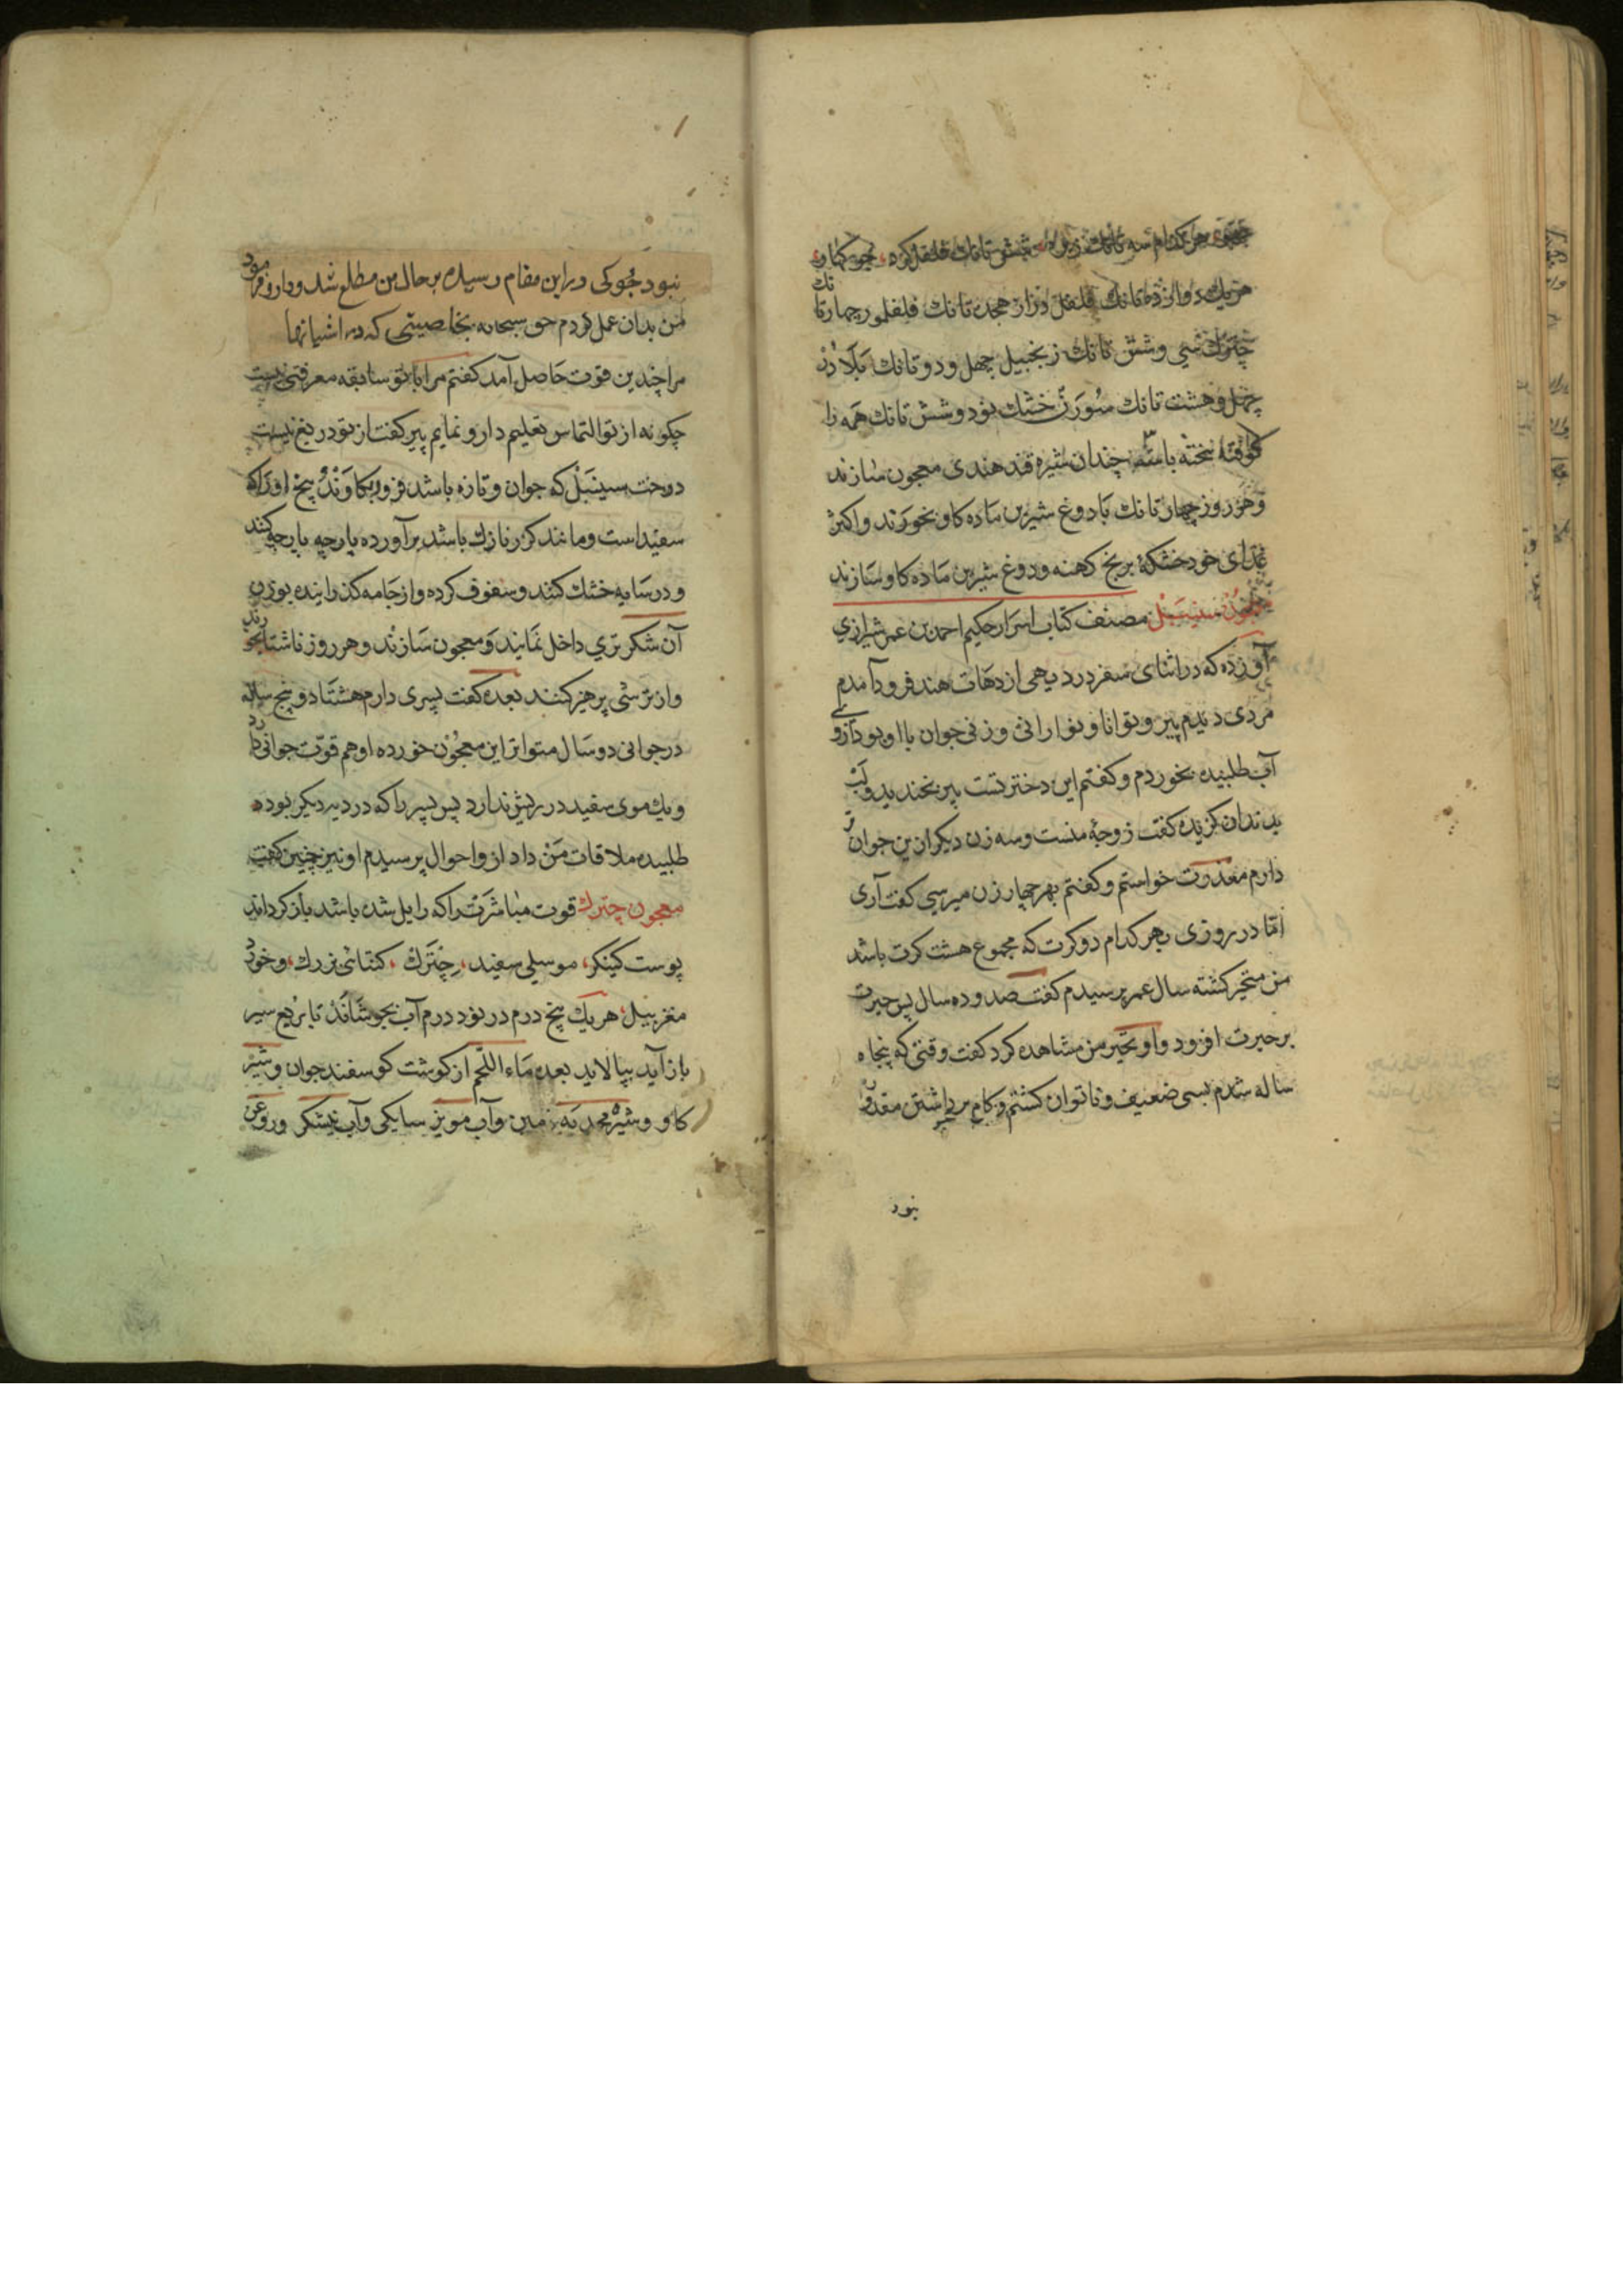 هر کدام سه تانك شش تانك فلفل کرده
هر يك دوازده تانك فلفل دراز هجده تانك فلفلمور چهار تا
نك
چترك سي وشش تانك زنجبيل چهل ودو تانك بلادر
چهل وهشت تانك سورن خشك نود وشش تانك همه را
کوفته بخته باسه چندان شيره قند هندی معجون سازند
وهر روز چهار تانك با دوغ شيرين ماده کاو بخورند واکثر
غذای خود خشکه برنج کهنه ودوغ شيرين ماده کاو سازند
معجون سينبل مصنف کتاب اسرار حکيم احمد بن عمر شيرازي
آورده که در اثنای سفر در ديهی از دهات هند فرود آمدم
مردی ديدم پير وتوانا ونورانی وزنی جوان با او بود ازو
آب طلبيده بخوردم وکفتم اين دختر تست پير بخنديد ولب
بدندان کزيده کفت زوجه منست وسه زن ديکر ازين جوان تر
دارم معذرت خواستم وکفتم بهر چهار زن ميرسي کفت آری
اما در روزی بهر کدام دو کرت که مجموع هشت کرت باشد
من متحير کشته سال عمر پرسيدم کفت صد وده سال پس حيرت
بر حيرت افزود واو تحير من مشاهده کرد کفت وقتی که پنجاه
ساله شدم بسی ضعيف وناتوان کشتم وکام برداشتن مقدور
نبود
نبود جوکی در اين مقام رسيده بر حال من مطلع شد ودارو فرمود
من بدان عمل کردم حق سبحانه بخاصيتی که در اشيا نها
مرا چندين قوت حاصل آمد کفتم مرا با تو سابقه معرفتی نيست
چکونه از تو التماس تعليم دارو نمايم پير کفت از تو دريغ نيست
درخت سينبل که جوان وتازه باشد فرو بکاوند وبيخ او را که
سفيد است ومانند کزر نازك باشد بر آورده پارچه پارچه کنند
ودر سايه خشك کنند وسفوف کرده واز جامه کذرانيده بوزن
آن شکر تري داخل نمايند ومعجون سازند وهر روز ناشتا بخورند
واز ترشی پرهيز کنند بعده کفت پسری دارم هشتاد وپنج ساله
در جوانی دو سال متواتر اين معجون خورده او هم قوت جوانی دارد
ويك موی سفيد در ريش ندارد پس پسر را که در ديه ديکر بوده
طلبيده ملاقات من داد ازو احوال پرسيدم او نيز چنين کفت
معجون چترك قوت مباشرت را که زايل شده باشد باز کرداند
پوست کينکر، موسلی سفيد، چترك، کتائی بزرك، وخورد
مغز بيل، هر يك پنج درم در نود درم آب بجوشاند تا بربع سير
باز آيد بپالايد بعده ماء اللحم از کوشت کوسفند جوان وشير
کاو وشيره وآب مويز سايکی وآب نيشکر وروغن